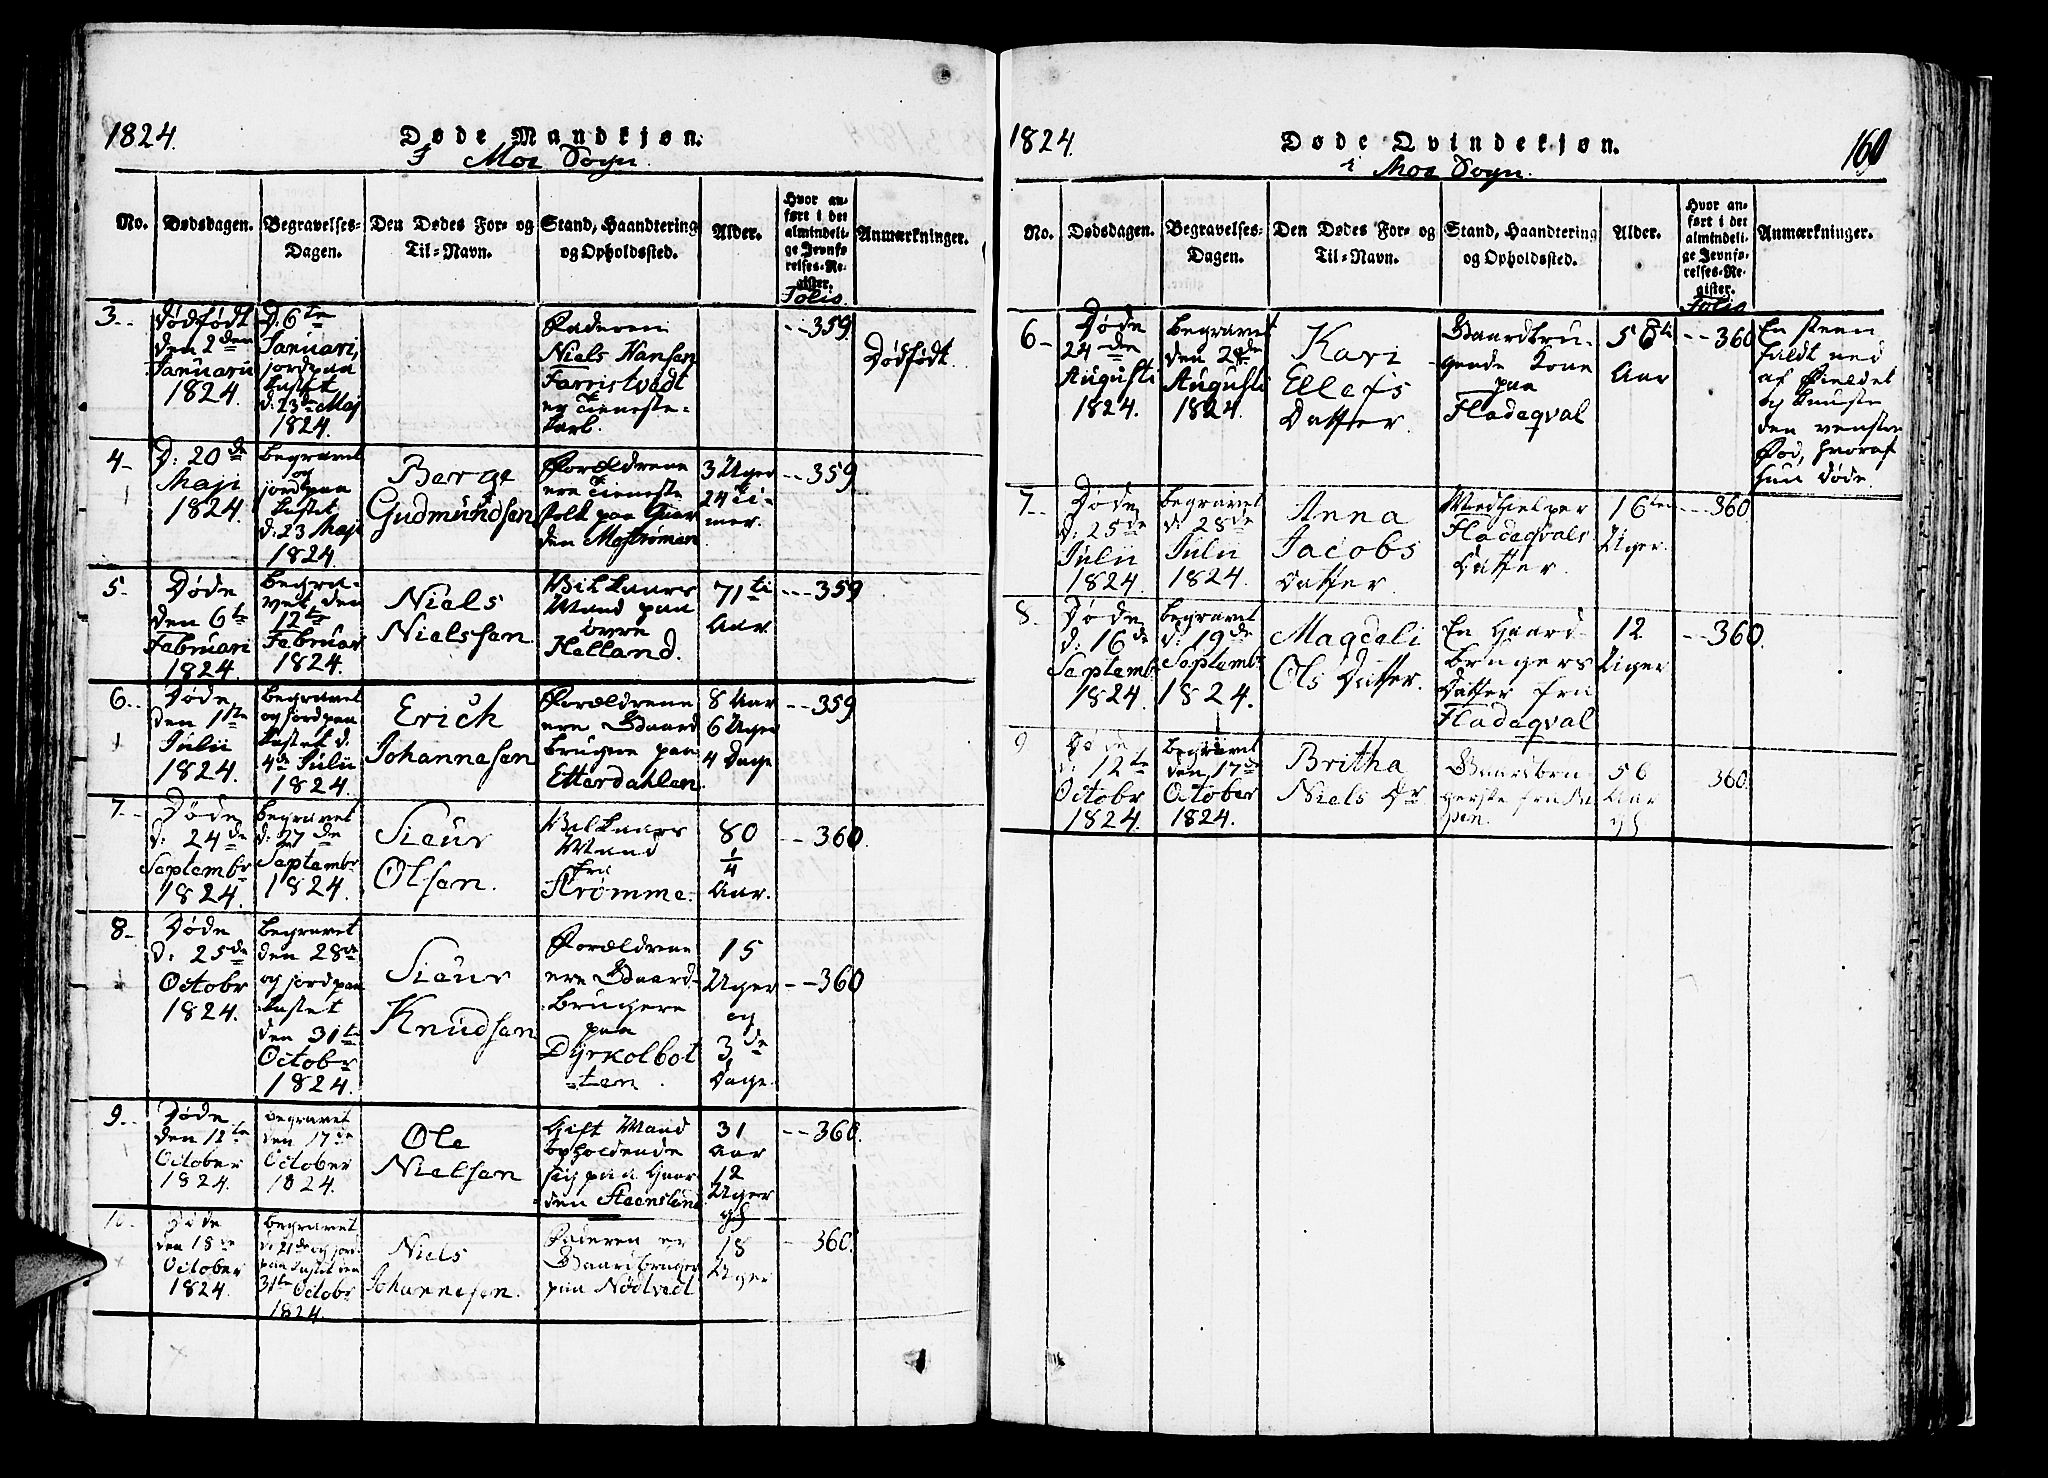 1824.
Døde Mandkjøn.
I Moe Sogn.
No.
Dødsdagen.
Begravelses-
Dagen.
Den Dødes For- og
Til-Navn.
Stand, Haandtering
og Opholdssted.
Alder.
Hvor an-
ført i det
almindeli-
ge Jevnfø-
relses-Re-
gister.
Folio.
Anmærkninger.
3.
Dødfødt
den 2den
Januarii
1824.
D: 6te
Januari,
jordpaa
kastet,
d: 23de Maj
1824.
Faderen
Niels Hansen
Farristvedt
er Tieneste-
karl.
359.
Dødfødt.
4.
D: 20de
Maji
1824.
begravet
og
jordpaa
kastet,
d: 23 Maji
1824.
Berge
Gudmundsen
Forældrene
ere Tieneste
folk paa Gaar
den Mostrømen
3 Uger
24 Ti-
mer.
359
5.
Døde
den 6te
Februari
1824.
begra-
vet den
12te
Februar
1824.
Niels
Nielssen
Vilkaars
Mand paa
øvre
Helland.
71ti
Aar.
359
6.
Døde
den 1ste
Julii
1824.
begravet
og jordpaa
kastet d.
4de Julii
1824.
Erich
Johannesen
Forældrene
ere Gaard
brugere paa
Etterdahlen
8 Aar
6 Uger
4 Dage
359
7.
Døde
d: 24de
Septembr
1824.
begravet
d: 27de
Septembr
1824.
Sieur
Olsen.
Vilkaars
Mand
fra
Strømme.
80
1/4
Aar.
360.
8.
Døde
d: 25de
Octobr
1824.
begravet
den 28de
og jordpaa
kastet
den 31te
Octobr
1824.
Sieur
Knudsen
Forældrene
ere Gaard-
brugere
paa
Dyrkolbot
ten.
15
Uger
og
3de
Dage.
360
9.
Døde
den 12te
October
1824.
begravet
den 17de
October
1824.
Ole
Nielsen
Gift Mand
opholdende
sig paa Gaar
den Steensland
31
Aar
12
Uger
360.
10.
Døde
den 18de
October
1824.
begravet
d: 21de og jord
paa kastet den
31te Octobr
1824.
Niels
Johannesen.
Faderen er
Gaardbruger
paa Nødtvedt
18
Uger
360.
1824.
Døde Qvindekjøn.
i Moe Sogn.
160
No.
Dødsdagen.
Begravelses-
Dagen.
Den Dødes For- og
Til-Navn.
Stand, Haandtering
og Opholdssted.
Alder.
Hvor an-
ført i det
almindeli-
ge Jevnfø-
relses-Re-
gister.
Folio
Anmærkninger.
6
Døde
24de
Augusti
1824.
begravet
den
Augusti
1824.
Kari
Ellefs
Datter.
Gaardbru-
gende Kone
paa
Fladeqval
58ti
Aar
360
En steen
faldt ned
af Fieldet
og knuste
den venstre
Fod, hvoraf
hun døde.
7.
Døde
d: 25de
Julii
1824.
begravet
d: 28de
Julii
1824.
Anna
Jacobs
Datter.
Medhielper
Fladeqvals
Datter.
16ten
Uger.
360
8.
Døde
d: 16de
Septembr
1824.
begravet
d: 19de
Septembr
1824.
Magdeli
Ols Datter.
En Gaard-
brugers
Datter fra
Fladeqval
12
Uger
360.
9
Døde
d: 12te
Octobr
1824.
begravet
den 17de
October
1824.
Britha
Niels Dr
Gaardbru-
gerske fra
56
Aar
360.